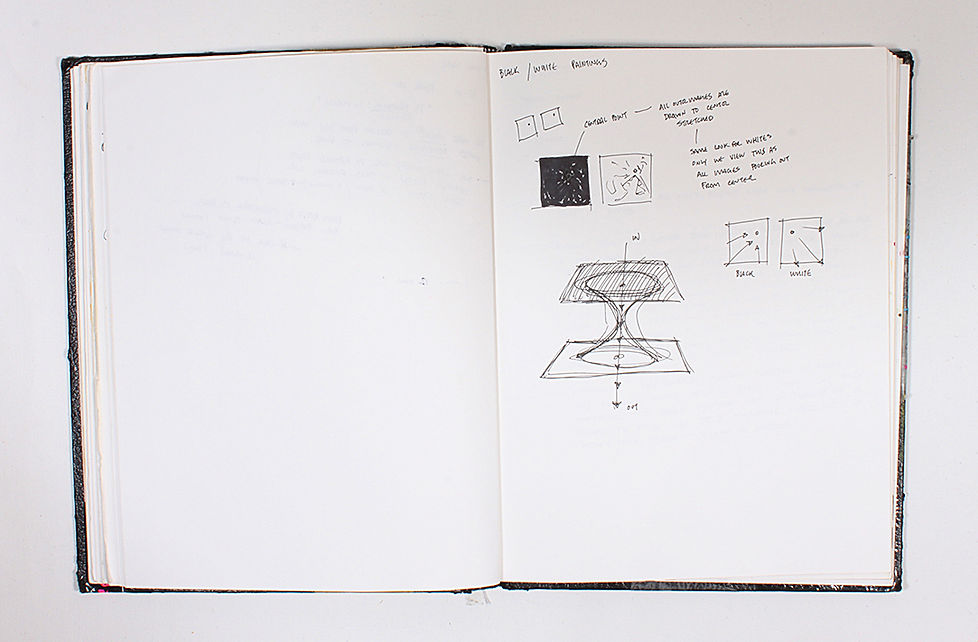 BLACK / WHITE PAINTINGS
CENTRAL POINT — ALL OUTER IMAGES ARE
DRAWN TO CENTER
STRETCHED
SAME LOOK FOR WHITES
ONLY WE VIEW THIS AS
ALL IMAGES POURING OUT
FROM CENTER
BLACK
WHITE
IN
OUT